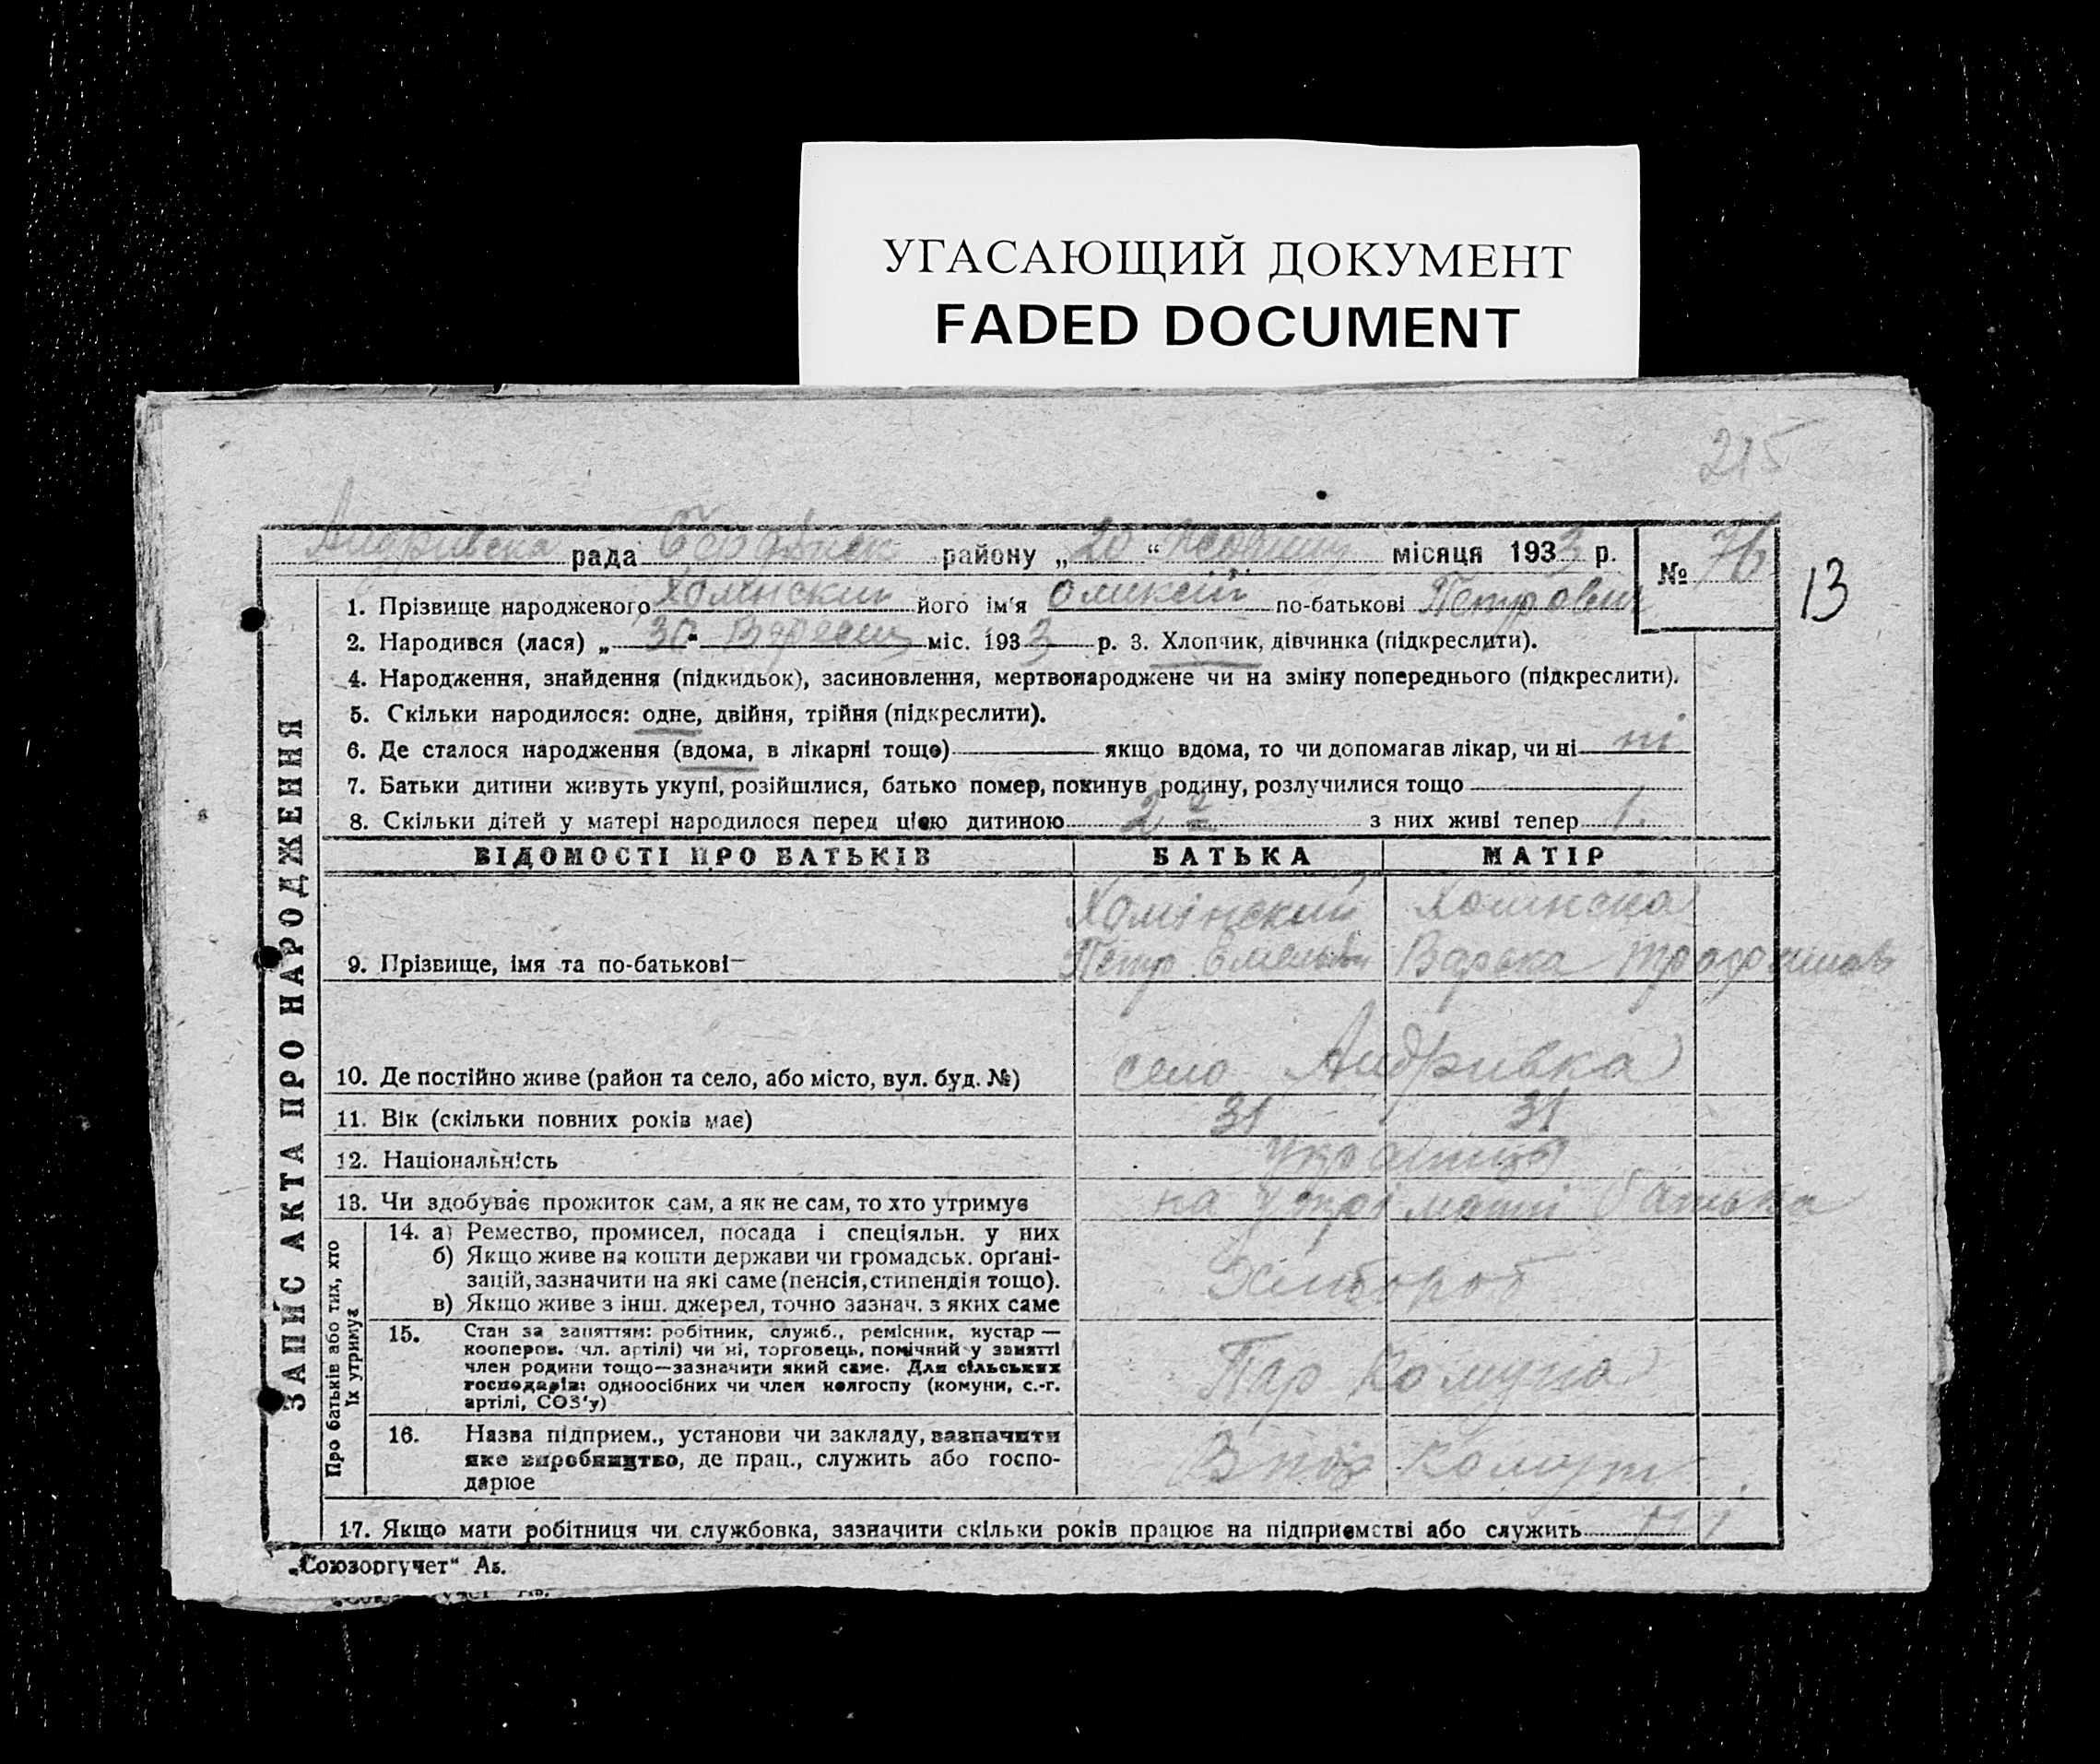 УГАСАЮЩИЙ ДОКУМЕНТ
FADED DOCUMENT
215
Андривска рада району „20“ Жовтня місяця 1933 р. № 76
13
1. Прізвище народженого Хомінский його ім'я Оликсій по-батькові Петрович
2. Народився (лася) „30“ Вересня міс. 1933 р. 3. Хлопчик, дівчинка (підкреслити).
4. Народження, знайдення (підкидьок), засиновлення, мертвонароджене чи на зміну попереднього (підкреслити).
5. Скільки народилося: одне, двійня, трійня (підкреслити).
6. Де сталося народження (вдома, в лікарні тощо) якщо вдома, то чи допомагав лікар, чи ні ні
7. Батьки дитини живуть укупі, розійшлися, батько помер, покинув родину, розлучилися тощо
8. Скільки дітей у матері народилося перед цією дитиною 2 з них живі тепер 1.
ВІДОМОСТІ ПРО БАТЬКІВ БАТЬКА МАТІР
Хомінский Хомінска
9. Прізвище, імя та по-батькові Петр Варвка
10. Де постійно живе (район та село, або місто, вул. буд. №) село Андривка
11. Вік (скільки повних років має) 31 31
12. Національність Українці
13. Чи здобуває прожиток сам, а як не сам, то хто утримує на утріманні батька
14. а) Ремество, промисел, посада і спеціяльн. у них
б) Якщо живе на кошти держави чи громадськ. орґані-
зацій, зазначити на які саме (пенсія, стипендія тощо).
в) Якщо живе з інш. джерел, точно зазнач. з яких саме
Хлібороб
15. Стан за заняттям: робітник, служб., ремісник, кустар —
кооперов. (чл. артілі) чи ні, торговець, помічний у занятті
член родини тощо—зазначити який саме. Для сільських
господарів: одноосібних чи член колгоспу (комуни, с.-г.
артілі, СОЗ'у)
Пар Комуна
16. Назва підприєм., установи чи закладу, зазначити
яке виробництво, де прац., служить або госпо-
дарює
В пар Комуні
17. Якщо мати робітниця чи службовка, зазначити скільки років працює на підприємстві або служить
ЗАПИС АКТА ПРО НАРОДЖЕННЯ
Про батьків або тих, хто
їх утримує
„Союзоргучет“ Аз.